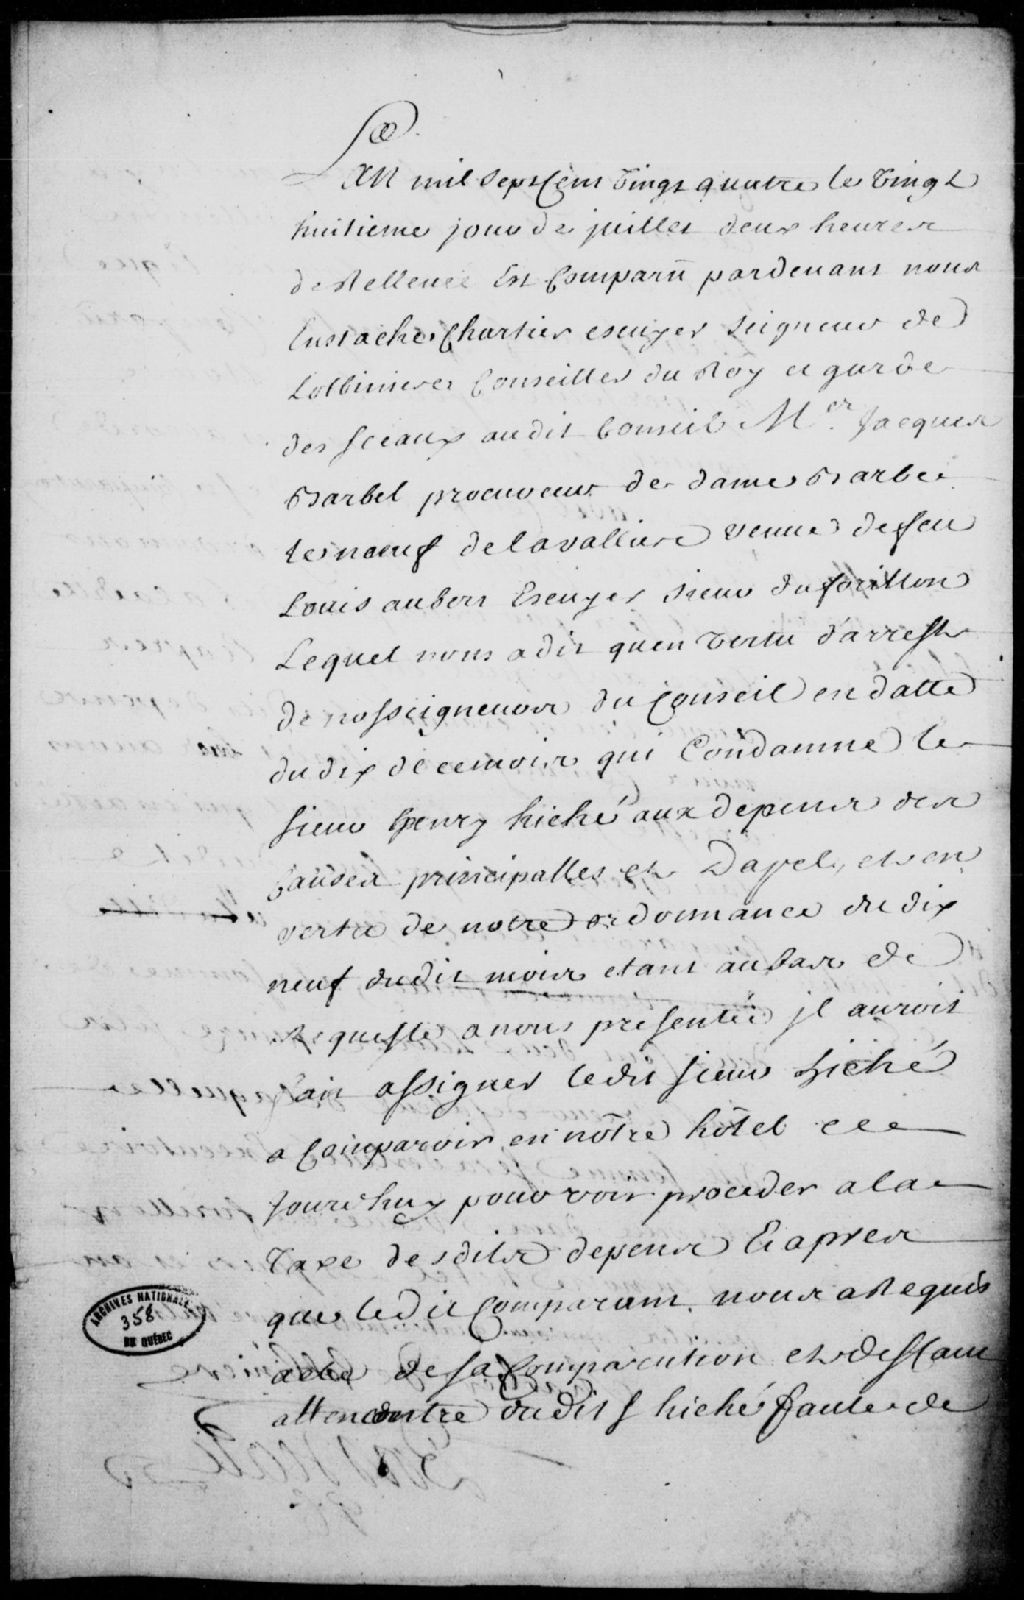 Lan mil sept Cent vingt quatre le vingt
huitieme jour de juillet deux heures
de Rellevée Est Comparu pardevant nous
Eustache Chartier escuyer seigneur de
Lotbiniere Conseiller du Roy et garde
des sceaux audit Conseil Mer. Jacques
Barbel procureur de dame Barbe
Leneuf de lavalliere veuve de feu
Louis aubert Escuyer sieur du forillon
Lequel nous a dit quen vertu d'arrest
de nosseigneurs du Conseil en datte
du dix de ce mois qui Condamne le
sieur henry hiché aux depens des
Causes principalles et Dapel, et en
vertu de notre ordonnance du dix
neuf dudit mois etant au bas de
Requeste a nous presentée jl auroit
fait assigner ledit sieur hiché
a Comparoir en nôtre hôtel ce
jourdhuy pour voir proceder a la
Taxe desdits depens Et apres
que ledit Comparant nous a Requis
acte de sa Comparution et deffaut
allencontre dudit s hiché faute de
ARCHIVES NATIONALES
358
DU QUÉBEC